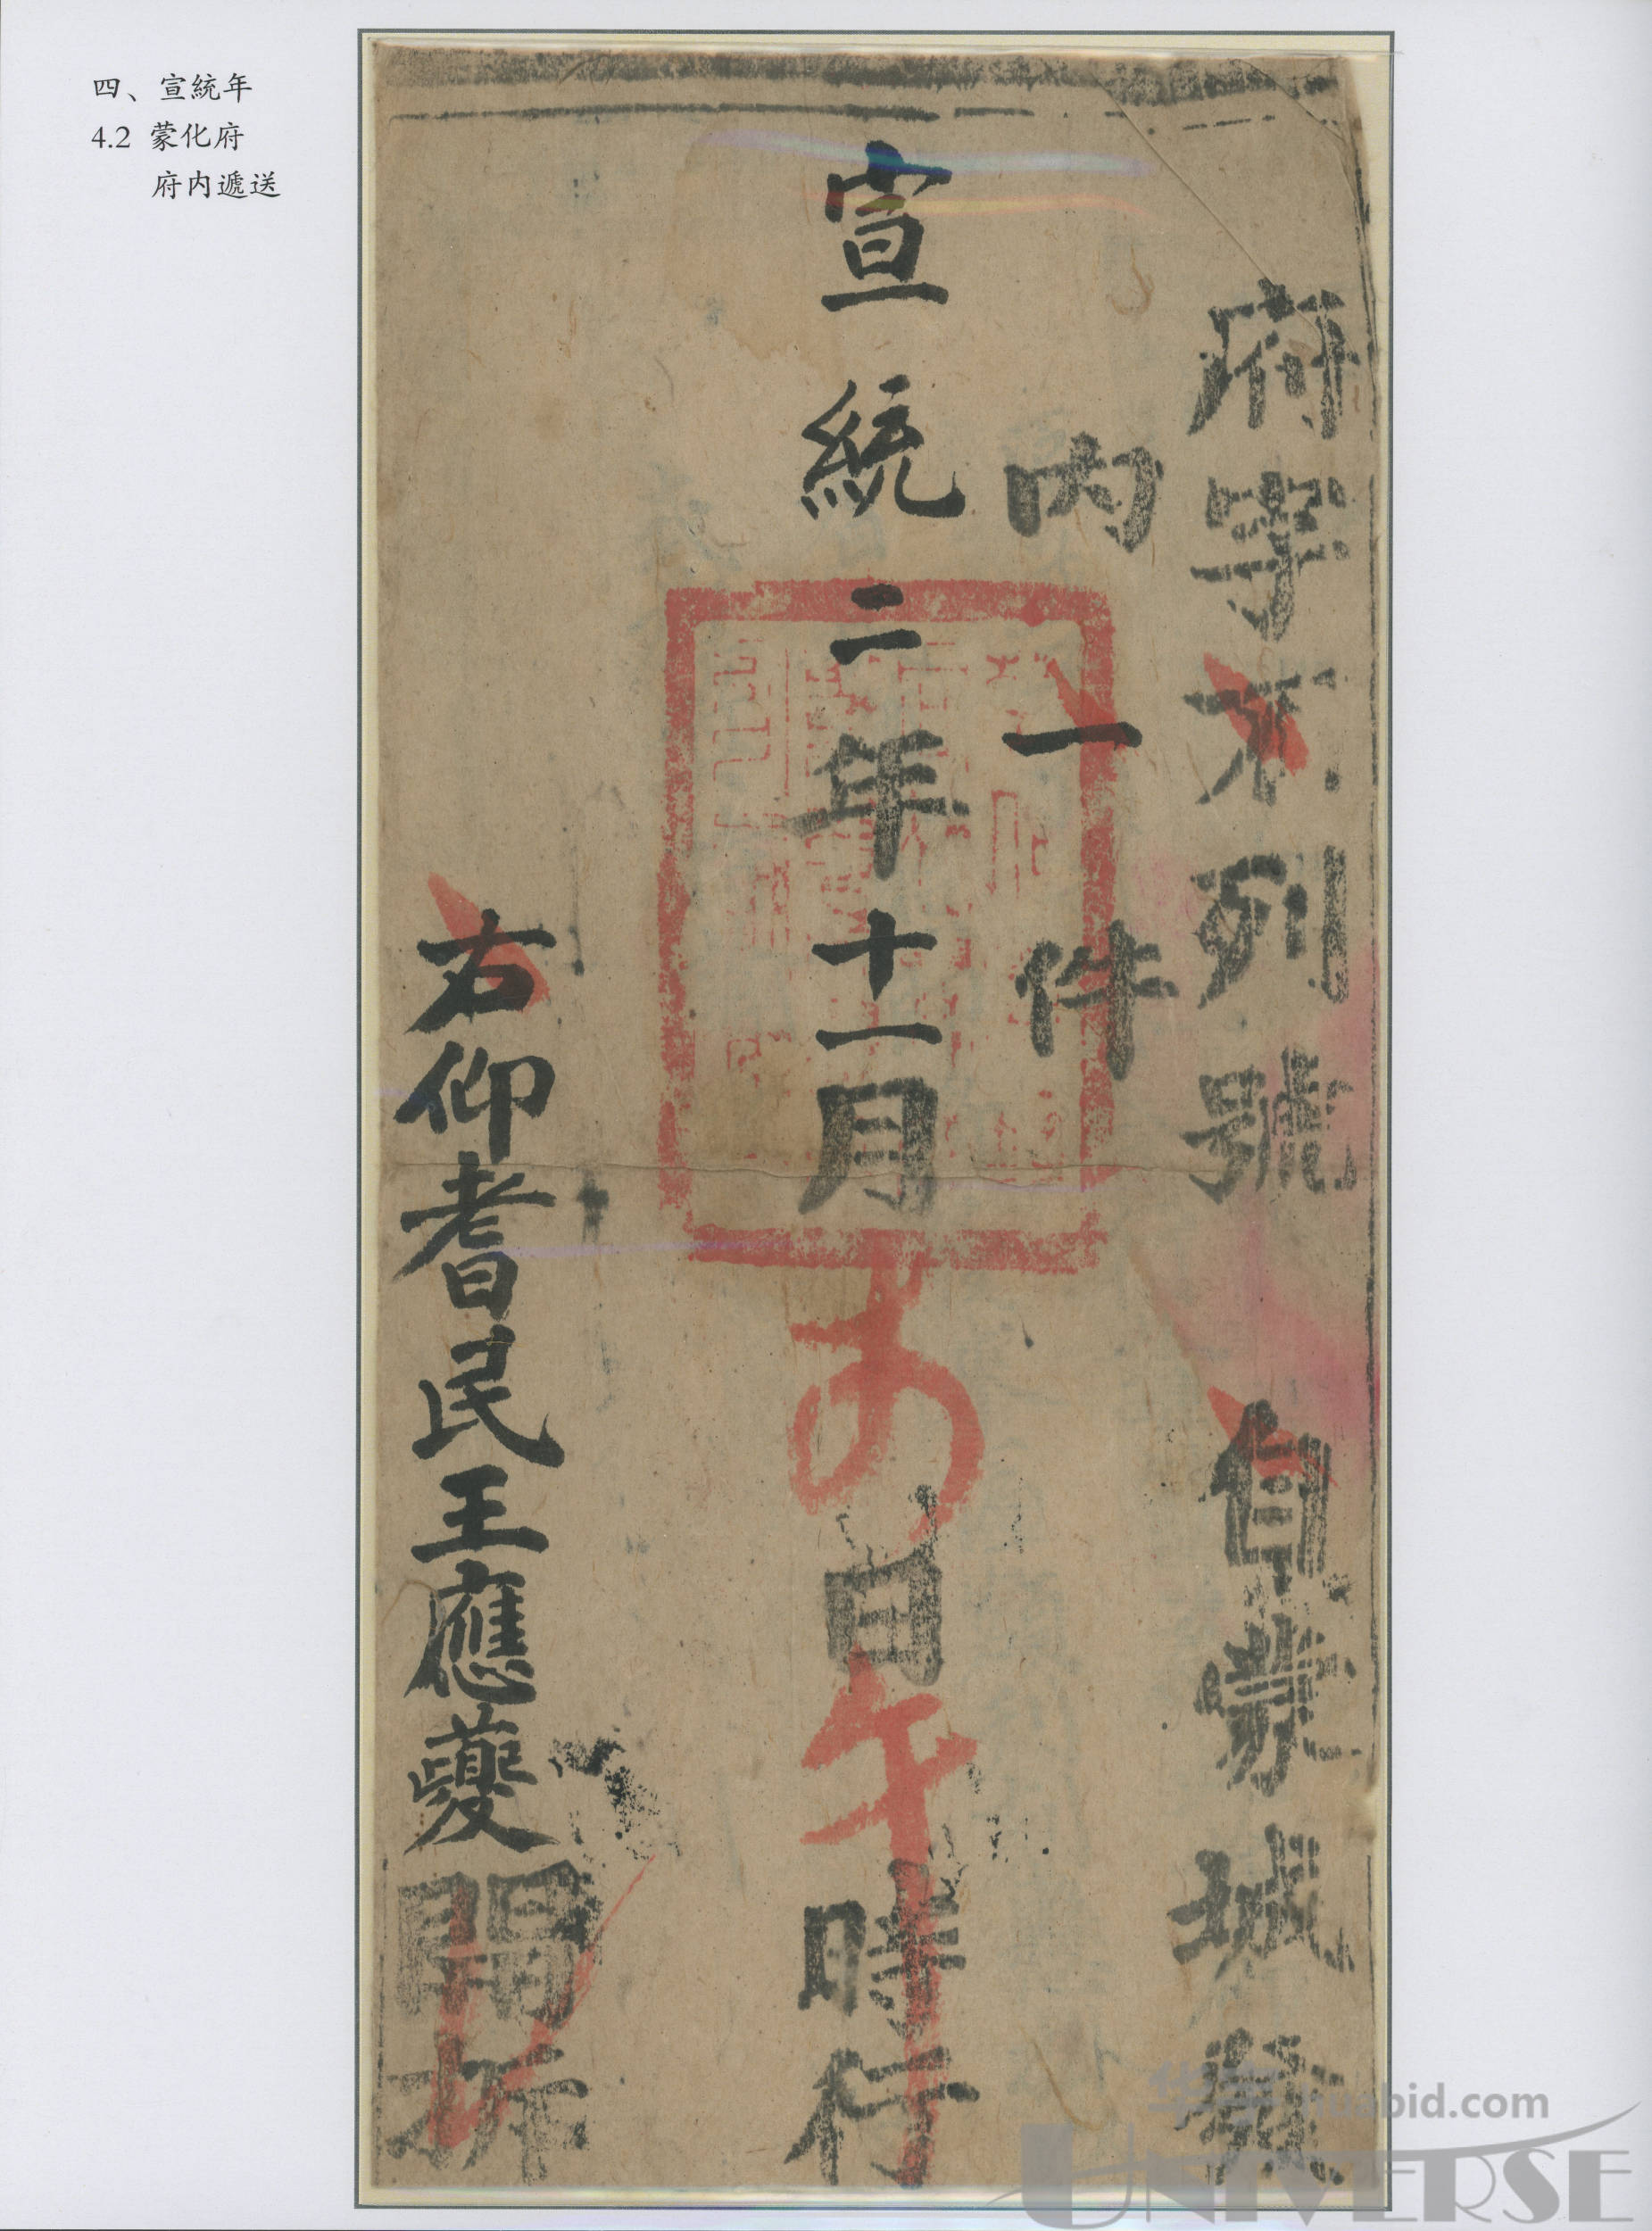 四、宣統年
4.2 蒙化府
府内遞送
府字不列號 自蒙城發
内一件
宣統二年十一月初 日午時行
右仰耆民王應夔開拆
huabid.com
UNIVERSE